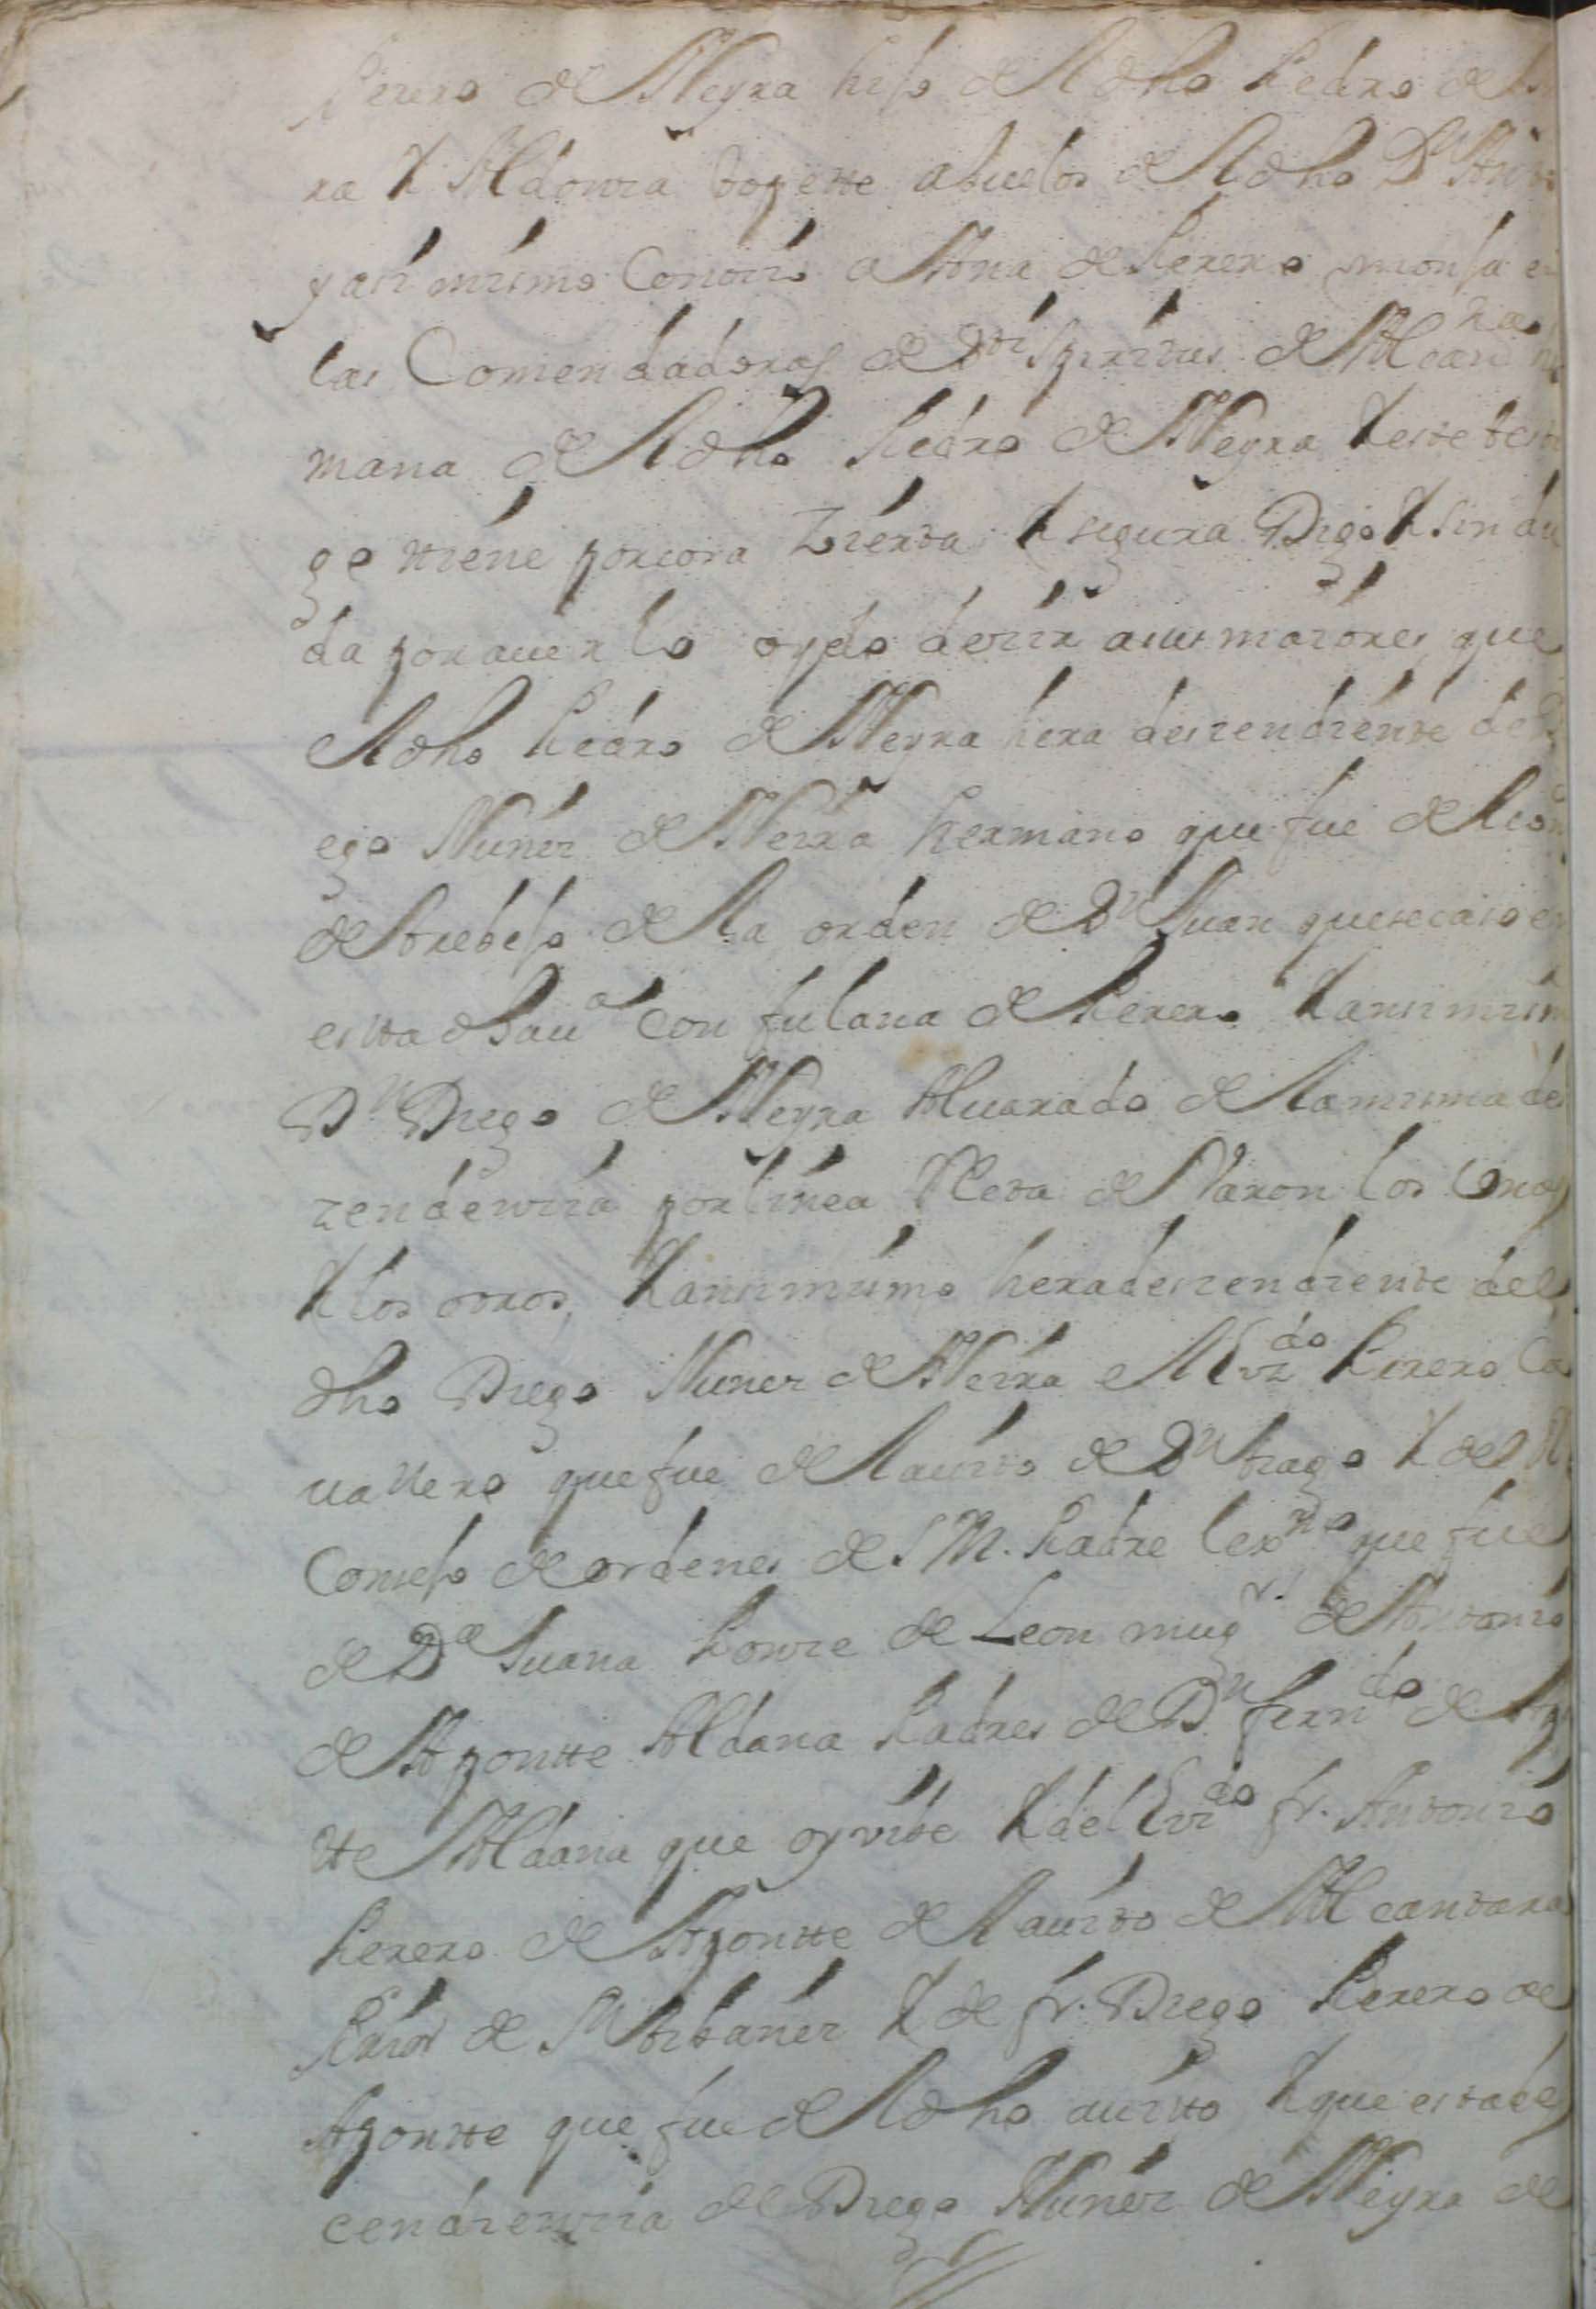 Perero de Neyra hijo del dho Pedro de
ra Y Aldonza topette abuelos del dho Dn Anto
y asi mismo Conozio a Ana de Perero monja en
las Comendadoras de Sti Spiritus de Alcanra
mana del dho Pedro de Neyra Y este testi
go ttiene por cosa Zierta Y segura Digo Y sin du
da por auerlo oydo dezir a sus maiores que
el dho Pedro de Neyra hera deszendiente de
ego Nuñez de Neira hermano que fue de
de trebejo de la orden de Sn Juan que se caso en
esta dha uа Con fulana de Perero Y ansi mism
Dn Diego de Neyra Aluarado de la misma des
zendenzia por linea Reta de Varon los Unos
Y los otros, Y ansi mismo hera deszendiente del
dho Diego Nunez de Neira el Lizdo Perero Ca
uallero que fue del auito de Sn tiago Y del
Consejo de ordenes de S M. Padre lexmo que fue
de Da Juana Ponze de Leon mugr. de Antonio
de Apontte Aldana Padres de Dn ferndo de Apo
tte Aldana que oy vibe Y del Lizdo fr. Antonio
Perero de Apontte del auito de Alcantara
Prior de Sn tibañez Y de fr. Diego Perero de
Apontte que fue del dho auitto Y que esta des
cendienzia de Diego Nuñez de Neyra de